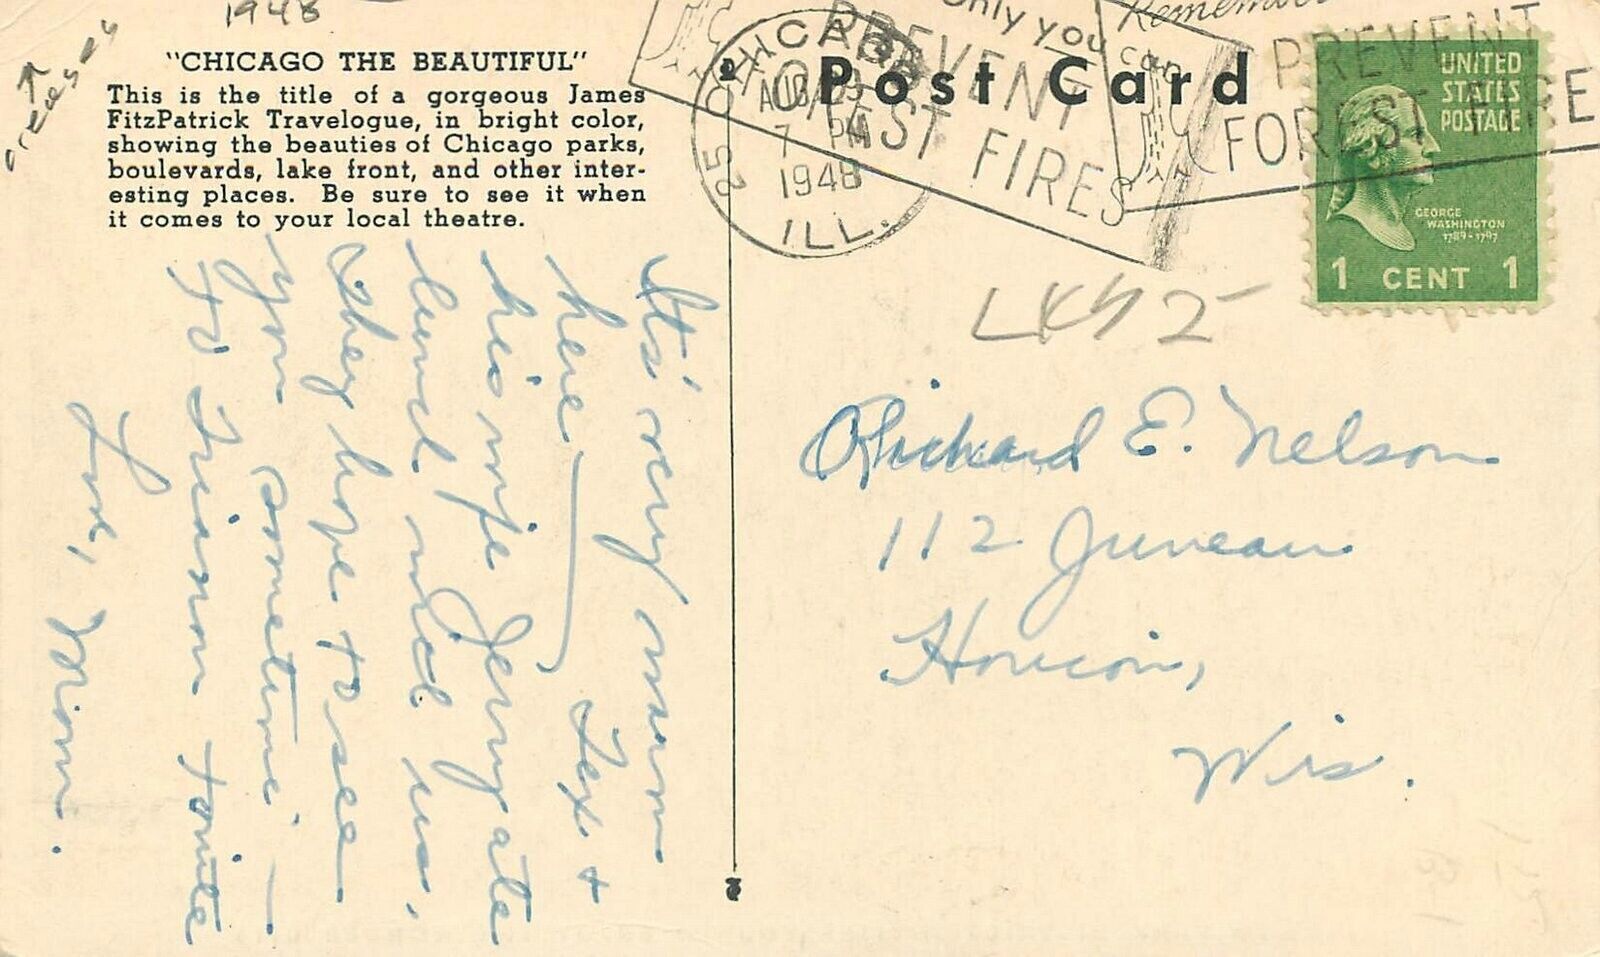 1948
creases
"CHICAGO THE BEAUTIFUL"
This is the title of a gorgeous James
FitzPatrick Travelogue, in bright color,
showing the beauties of Chicago parks,
boulevards, lake front, and other inter-
esting places. Be sure to see it when
it comes to your local theatre.
Post Card
CHICAGO
AUG 29
7 PM
1948
ILL.
25
Only you
can
PREVENT
FOREST FIRES
Remember
PREVENT
FOREST FIRE
UNITED
STATES
POSTAGE
GEORGE
WASHINGTON
1789-1797
1 CENT 1
It's very warm
here Tex +
his wife Jerry ate
lunch with us,
They hope to see
you sometime —
To Trianon tonite
Love, Norm.
Richard E. Nelson
112 Juneau
Horicon,
Wis.